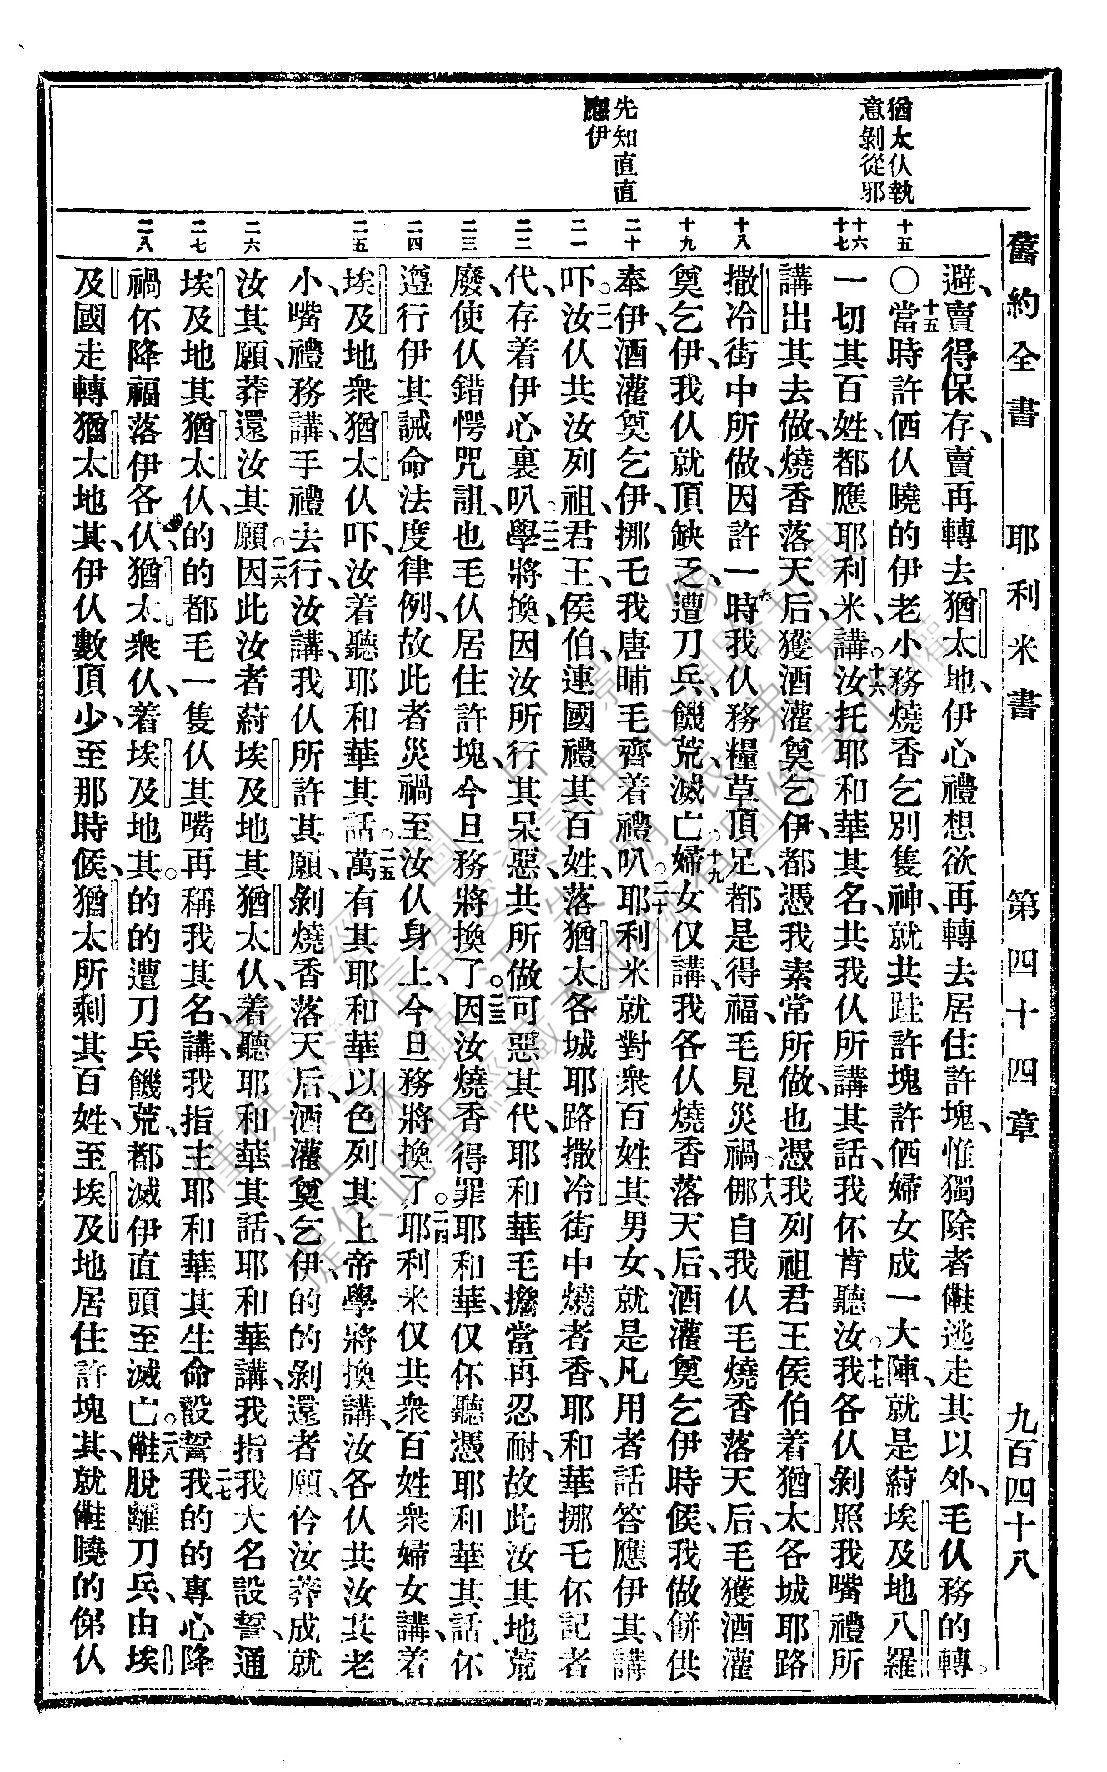 舊約全書 耶利米書 第四十四章 九百四十八
猶太仈執
意剝從邪
先知直直
應伊
十五
十六
十七
十八
十九
二十
二一
二二
二三
二四
二五
二六
二七
二八
避、賣得保存、賣再轉去猶太地、伊心禮想欲再轉去居住許塊、惟獨除者𠆧逃走其以外、毛仈務的轉。
十五〇當時許侕仈曉的伊老小務燒香乞別隻神、就共跓許塊許侕婦女成一大陣、就是䔇埃及地八羅
一切其百姓、都應耶利米講、十六汝托耶和華其名、共我仈所講其話、我伓肯聽汝。十七我各仈剝照我嘴禮所
講出其去做、燒香落天后、獲酒灌奠乞伊、都憑我素常所做、也憑我列祖君王侯伯着猶太各城耶路
撒冷街中所做、因許一時我仈務糧草頂足、都是得福、毛見災禍。十八㑚自我仈毛燒香落天后、毛獲酒灌
奠乞伊、我仈就頂缺乏、遭刀兵、饑荒、滅亡。十九婦女仅講、我各仈燒香落天后、酒灌奠乞伊時候、我做餅供
奉伊、酒灌奠乞伊、挪毛我唐晡毛齊着禮叭。二十耶利米就對衆百姓其男女、就是凡用者話答應伊其、講
吓、二一汝仈共汝列祖、君王、侯伯、連國禮其百姓、落猶太各城耶路撒冷街中燒者香、耶和華挪毛伓記者
代、存着伊心裏叭、二二學將換、因汝所行其呆惡、共所做可惡其代、耶和華毛攨當再忍耐、故此汝其地荒
廢、使仈錯愕咒詛、也毛仈居住許塊、今旦務將換了。二三因汝燒香得罪耶和華、仅伓聽憑耶和華其話、伓
遵行伊其誡命法度律例、故此者災禍至汝仈身上、今旦務將換了。二四耶利米仅共衆百姓衆婦女講、着
埃及地衆猶太仈吓、汝着聽耶和華其話。二五萬有其耶和華以色列其上帝學將換講、汝各仈共汝其老
小、嘴禮務講、手禮去行、汝講、我仈所許其願、剝燒香落天后、酒灌奠乞伊、的的剝還者願、伶汝莽成就
汝其願、莽還汝其願。二六因此汝者䔇埃及地其猶太仈、着聽耶和華其話、耶和華講、我指我大名設誓、通
埃及地其猶太仈、的的都毛一隻仈其嘴再稱我其名、講、我指主耶和華其生命設誓。二七我的的專心降
禍伓降福落伊各仈、猶太衆仈、着埃及地其、的的遭刀兵饑荒、都滅伊直頭至滅亡。二八𠆧脫離刀兵、由埃
及國走轉猶太地其、伊仈數頂少、至那時候、猶太所剩其百姓、至埃及地居住許塊其、就𠆧曉的俤仈